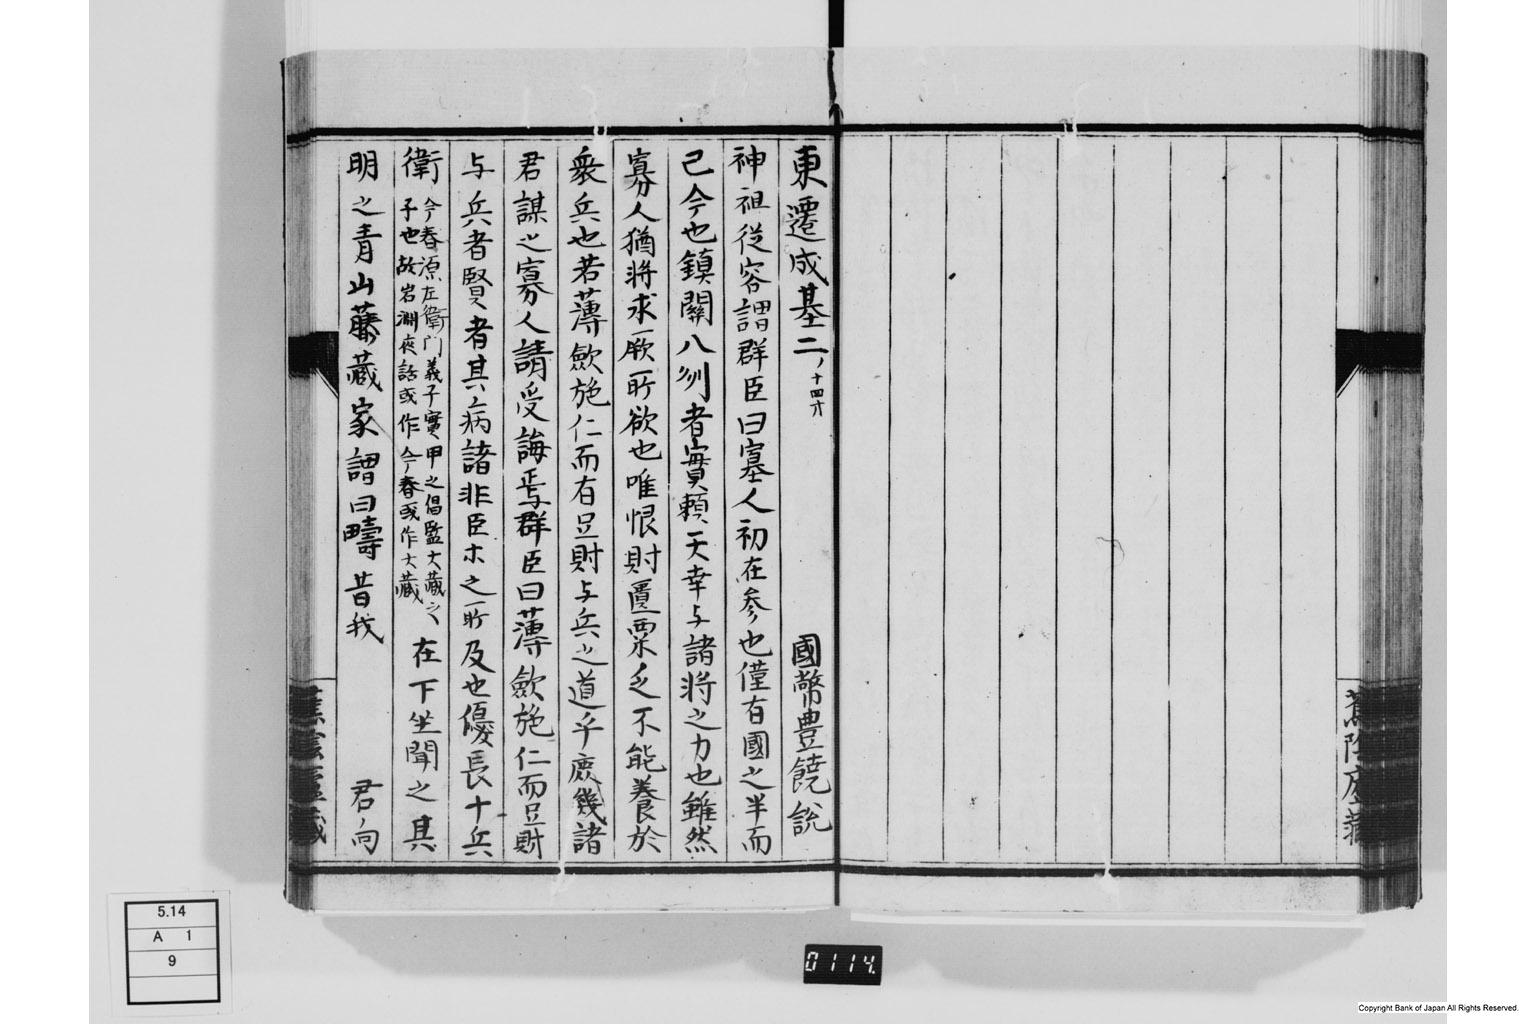 東遷成基二ノ十四ウ 國幣豊饒說
神祖從容謂群臣曰寡人初在參也僅有國之半而
己今也鎮關八州者實頼天幸与諸將之力也雖然
寡人猶將求厥所欲也唯恨財匱粟乏不能養於
衆兵也若薄歛施仁而有足財与兵之道乎庶幾諸
君謀之寡人請受誨焉群臣曰薄歛施仁而足財
与兵者賢者其病諸非臣木之所及也優長十兵
衛
今春源左衛门義子實甲之倡監大藏之
子也故岩淵夜話或作今春或作大藏
在下坐聞之其
明之青山藤藏家謂曰疇昔我 君向
蕉陰廬藏
5.14
A 1
9
0114.
Copyright Bank of Japan All Rights Reserved.